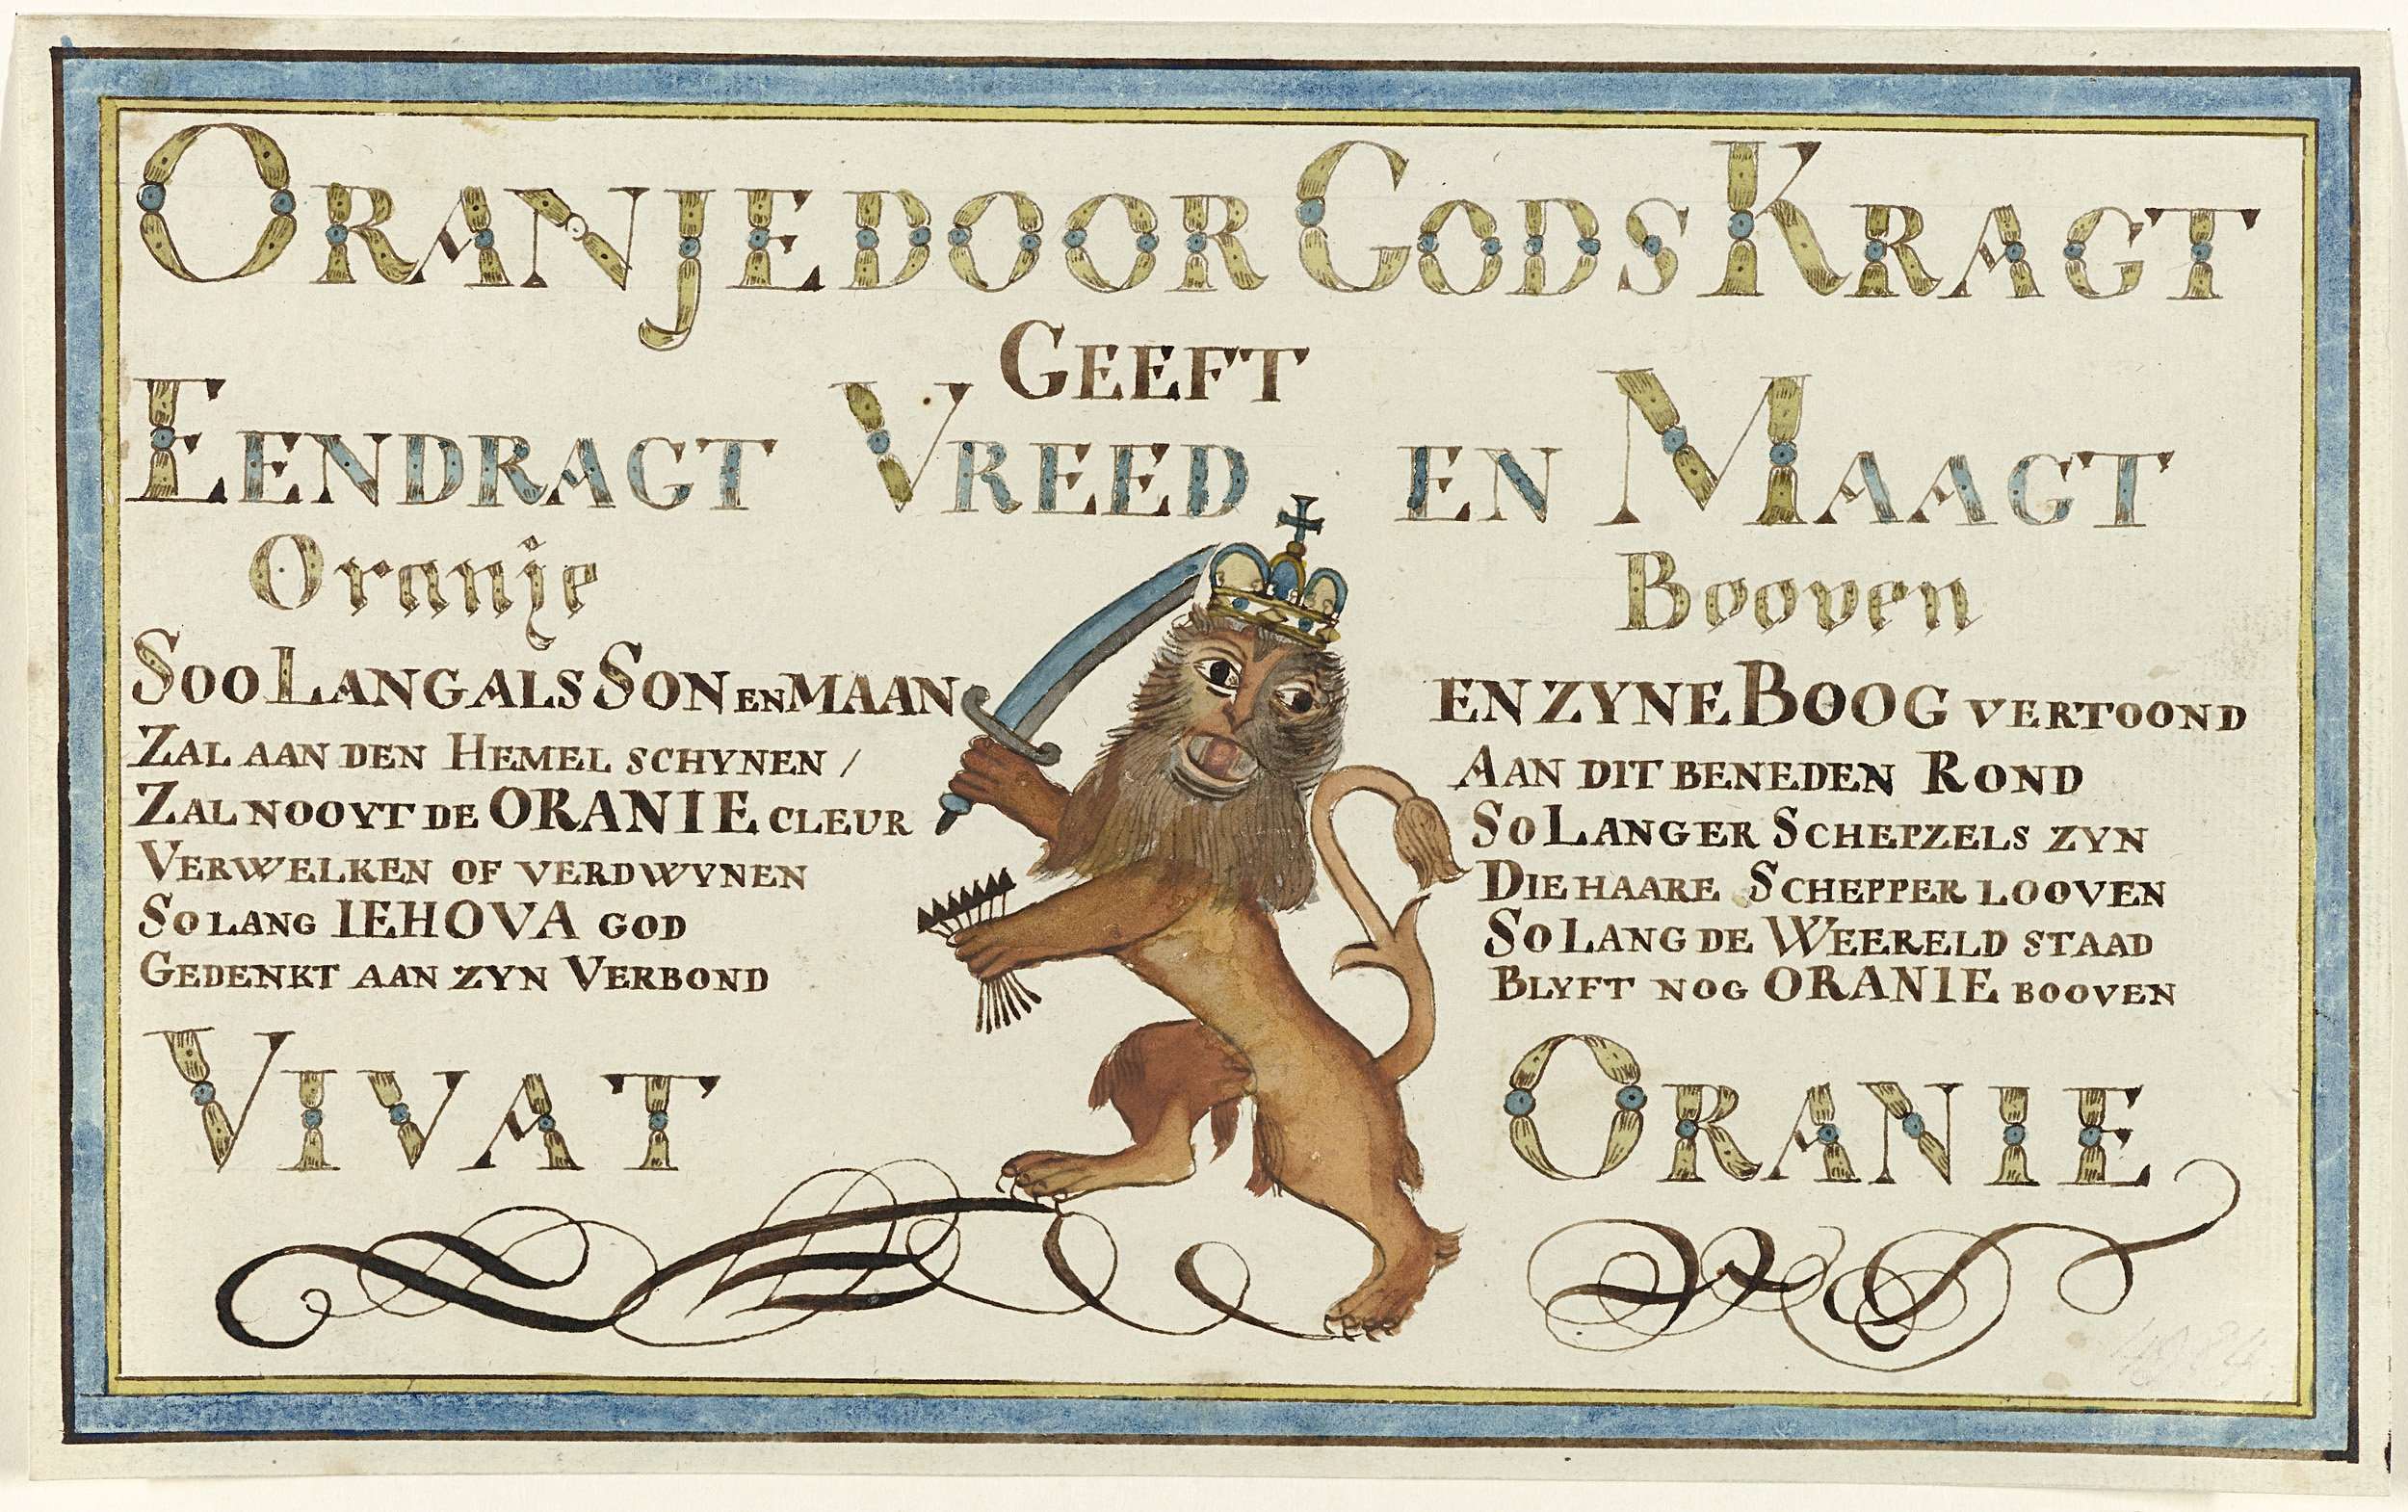 ORANJE DOOR GODS KRAGT
GEEFT
EENDRAGT VREED EN MAAGT
Oranje Booven
SOO LANG ALS SON EN MAAN
ZAL AAN DEN HEMEL SCHYNEN /
ZAL NOOYT DE ORANIE CLEUR
VERWELKEN OF VERDWYNEN
SO LANG IEHOVA GOD
GEDENKT AAN ZYN VERBOND
EN ZYNE BOOG VERTOOND
AAN DIT BENEDEN ROND
SO LANG ER SCHEPZELS ZYN
DIE HAARE SCHEPPER LOOVEN
SO LANG DE WEERELD STAAD
BLYFT NOG ORANIE BOOVEN
VIVAT ORANIE